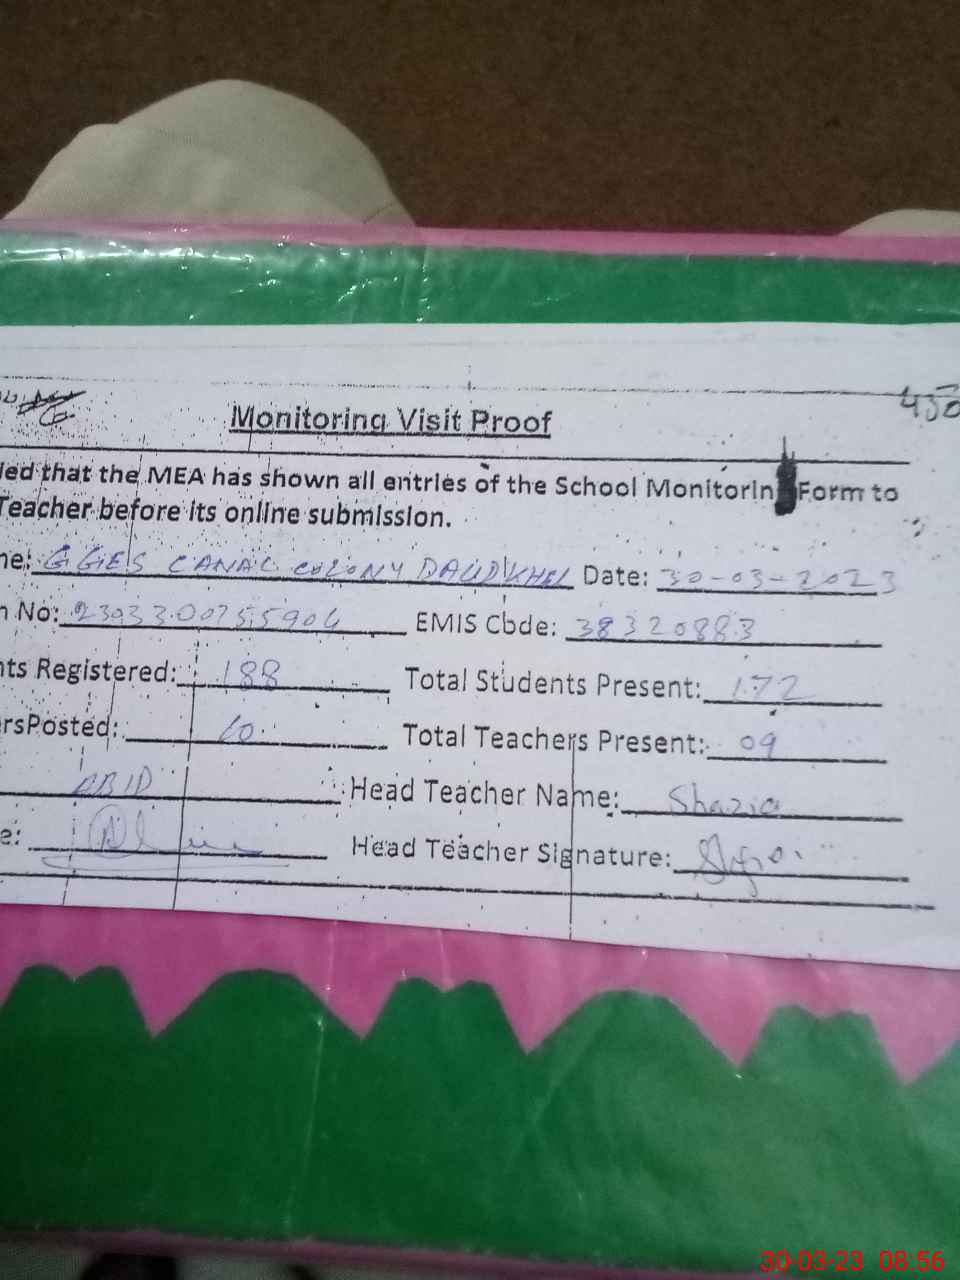 450
Monitoring Visit Proof
ied that the MEA has shown all entries of the School Monitorin Form to
Teacher before its online submission.
ne: GGES CANAL COLONY DAUDKHEL Date: 30-03-2023
n No: EMIS Code: 38320883
nts Registered: 188 Total Students Present: 172
rsPosted: 10 Total Teachers Present: 09
ABID Head Teacher Name: Shazia
e: Head Teacher Signature:
30-03-23 08:56